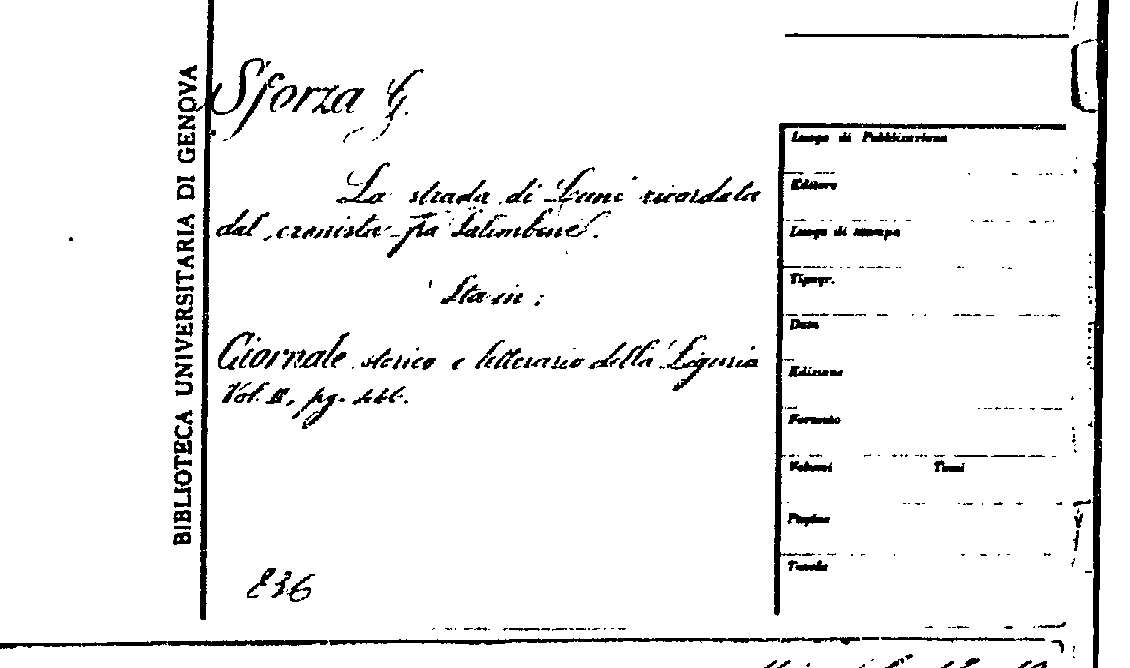 BIBLIOTECA UNIVERSITARIA DI GENOVA
Sforza G.
La strada di Luni ricordata
dal cronista fra Salimbene.
Sta in:
Giornale storico e letterario della Liguria
Vol. II, pg.
Luogo di Pubblicazione
Editore
Luogo di stampa
Tipogr.
Data
Edizione
Formato
Volumi Tomi
Pagine
Tavole